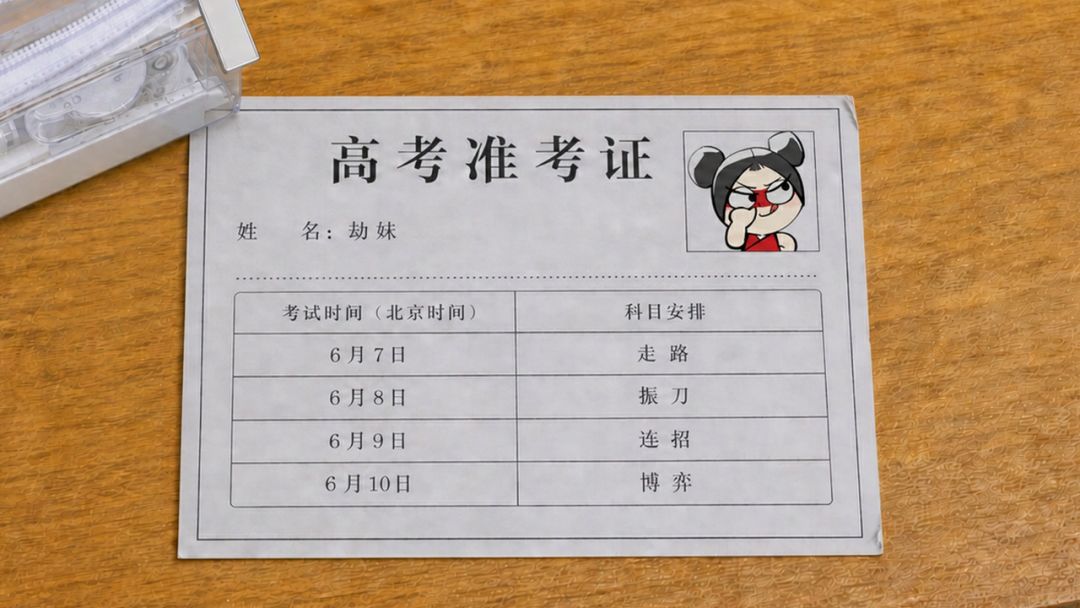 高考准考证
姓 名：劫妹
考试时间（北京时间） 科目安排
6月7日 走路
6月8日 振刀
6月9日 连招
6月10日 博弈